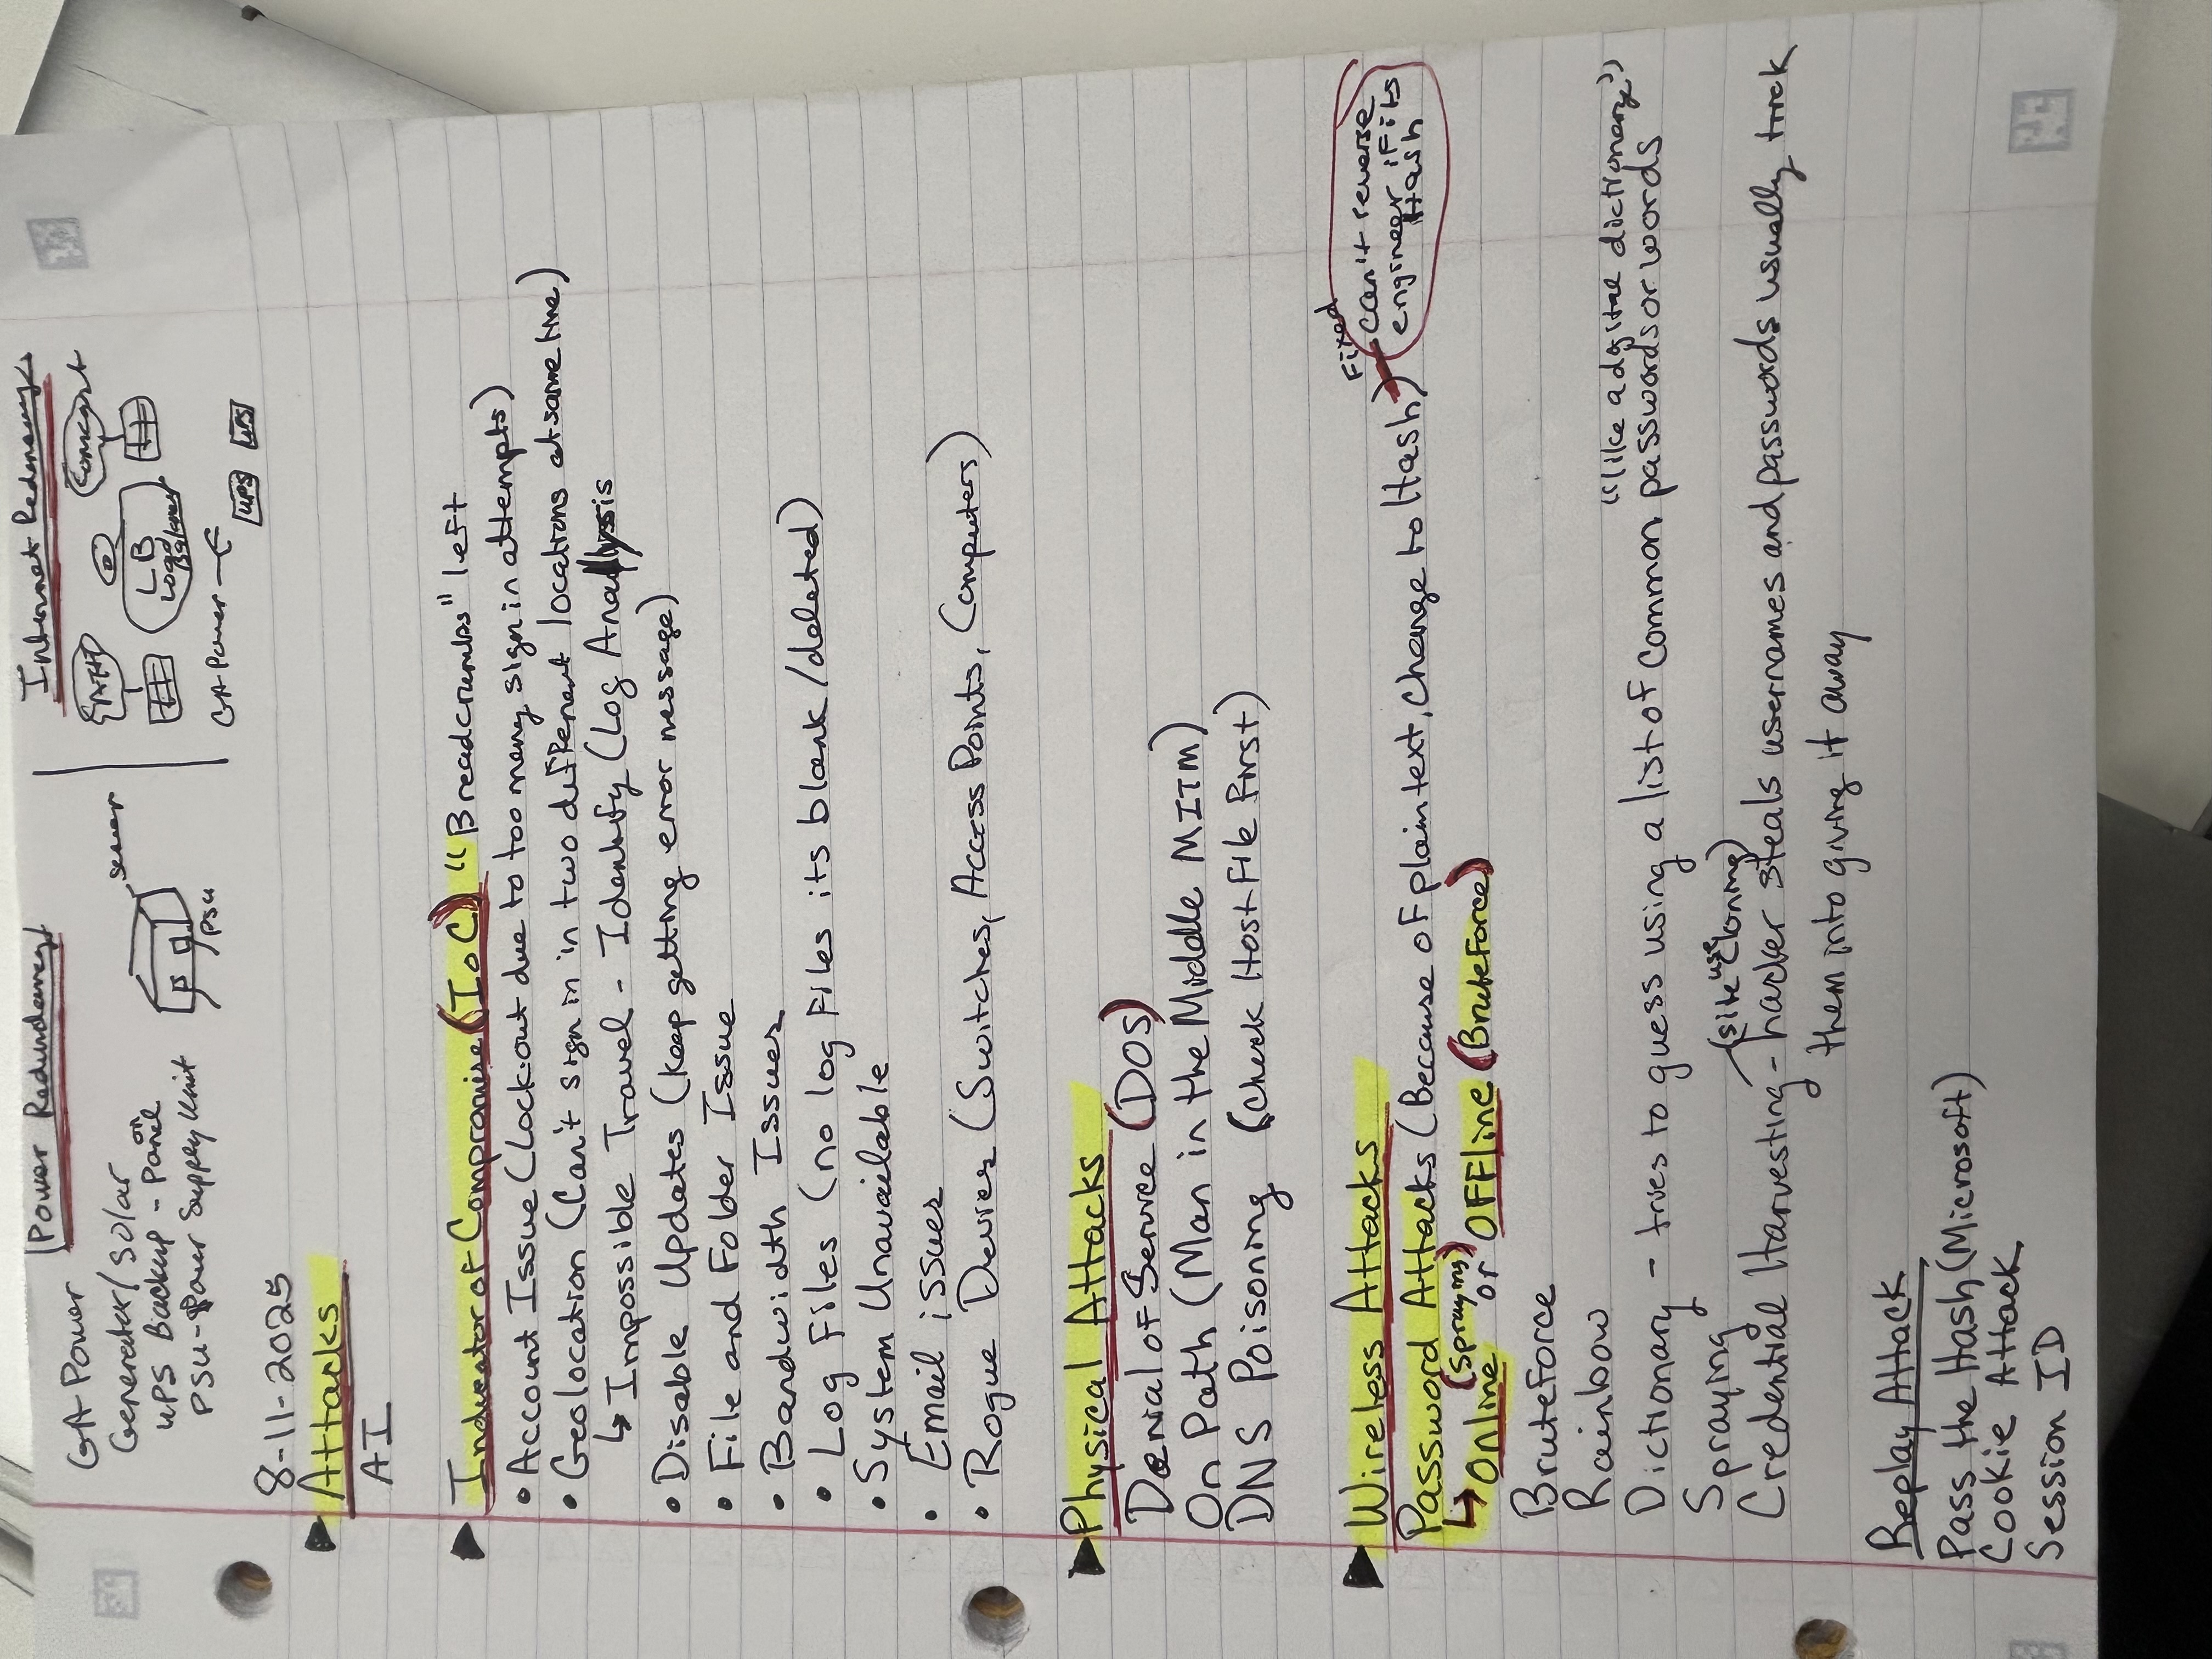 Power Redundancy
GA Power
Generator/Solar
UPS Backup - on Panel
PSU - Power Supply Unit
server
PSU
Internet
AT&T
Comcast
LB
Load Balancer
GA Power
UPS UPS
8-11-2025
Attacks
AI
Indicator of Compromise (IoC) "Breadcrumbs" left
• Account Issue (Lock-out due to too many sign in attempts)
• Geolocation (Can't sign in in two different locations at same time)
↳ Impossible Travel - Identify (Log Analysis
• Disable Updates (keep getting error message)
• File and Folder Issue
• Bandwidth Issues
• Log Files (no log files its blank/deleted)
• System Unavailable
• Email issues
• Rogue Devices (Switches, Access Points, Computers)
Physical Attacks
Denial of Service (DOS)
On Path (Man in the Middle MITM)
DNS Poisoning (Check Host File First)
Wireless Attacks
Password Attacks (Because of plain text, change to Hash)
Fixed
can't reverse
engineer if its
Hash
↳ Online (Spraying) or Offline (Bruteforce)
Bruteforce
Rainbow
"like a digital dictionary"
Dictionary - tries to guess using a list of common passwords or words
Spraying
(site use cloning)
Credential Harvesting - hacker steals usernames and passwords usually trick
them into giving it away
Replay Attack
Pass the Hash (Microsoft)
Cookie Attack
Session ID